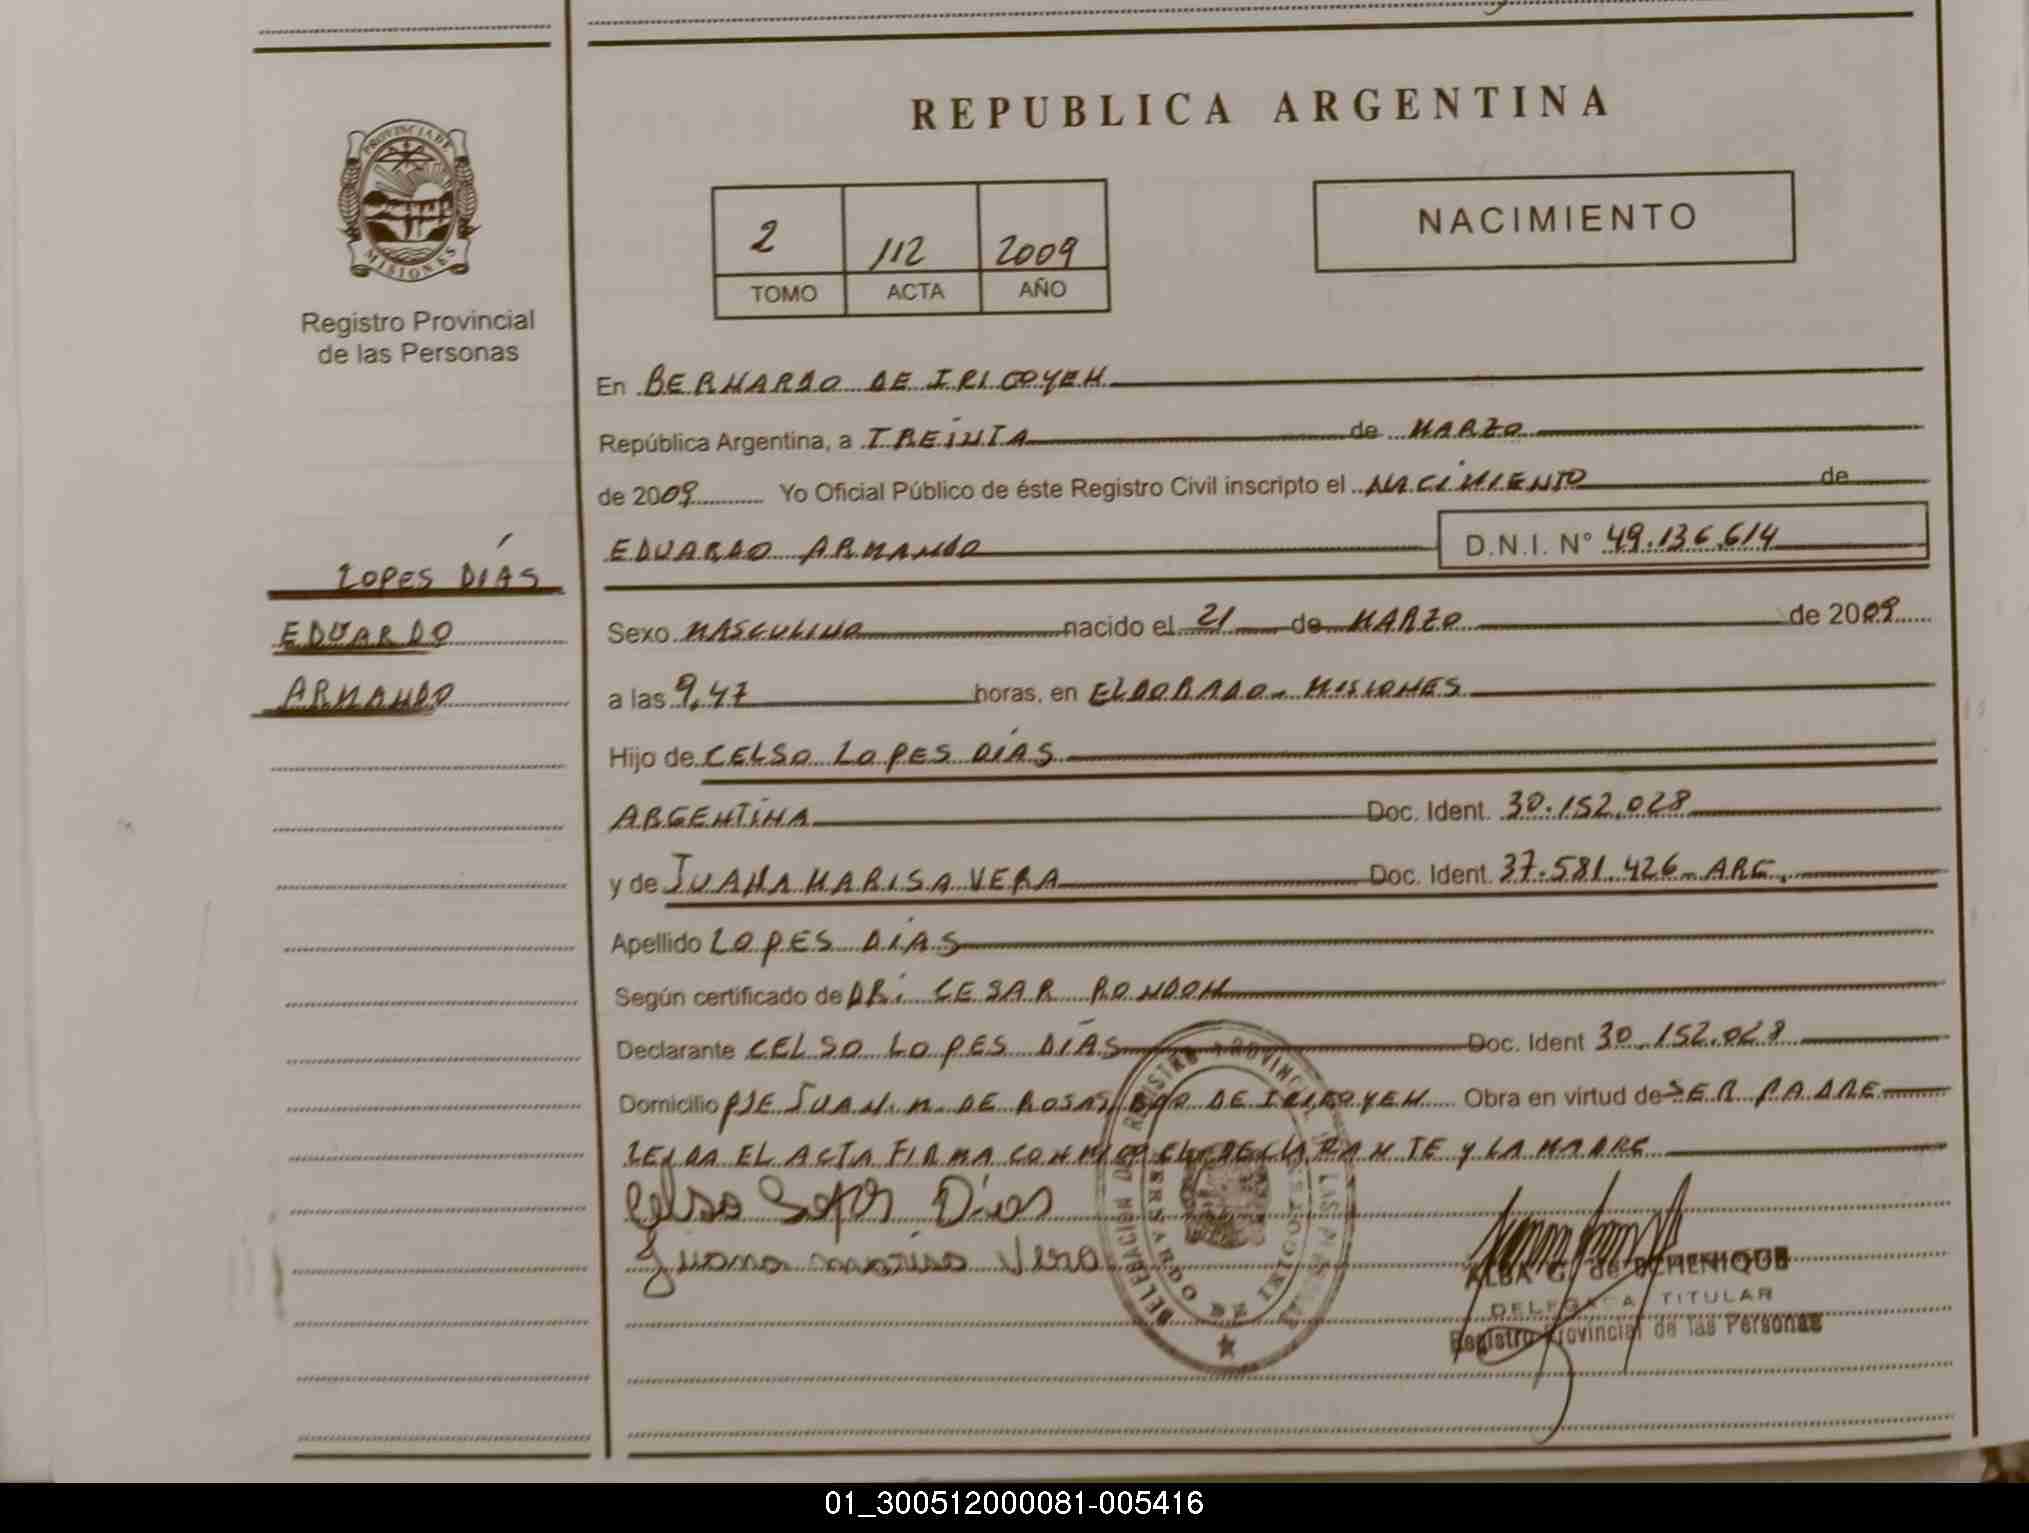 REPUBLICA ARGENTINA
PROVINCIA DE
MISIONES
Registro Provincial
de las Personas
2 112 2009
TOMO ACTA AÑO
NACIMIENTO
En BERNARDO DE IRIGOYEN
República Argentina, a TREINTA de MARZO
de 2009 Yo Oficial Público de éste Registro Civil inscripto el NACIMIENTO de
EDUARDO ARMANDO D.N.I. N° 49.136.614
LOPES DÍAS
EDUARDO
ARMANDO
Sexo MASCULINO nacido el 21 de MARZO de 2009
a las 9,47 horas, en ELDORADO - MISIONES
Hijo de CELSO LOPES DÍAS
ARGENTINA Doc. Ident. 30.152.028
y de JUANA MARISA VERA Doc. Ident. 37.581.426 - ARG.
Apellido LOPES DÍAS
Según certificado de DR. CESAR RONDON
Declarante CELSO LOPES DÍAS Doc. Ident 30.152.028
Domicilio PJE JUAN. M. DE ROSAS, BDO DE IRIGOYEN Obra en virtud de SER PADRE
LEIDA EL ACTA FIRMA CONMIGO EL DECLARANTE Y LA MADRE
Celso Lopes Días
Juana marisa Vera
DELEGACION DEL REGISTRO PROVINCIAL DE LAS PERSONAS
BERNARDO DE IRIGOYEN
ALBA G. de
DELEGADA TITULAR
Registro Provincial de las Personas
01_300512000081-005416